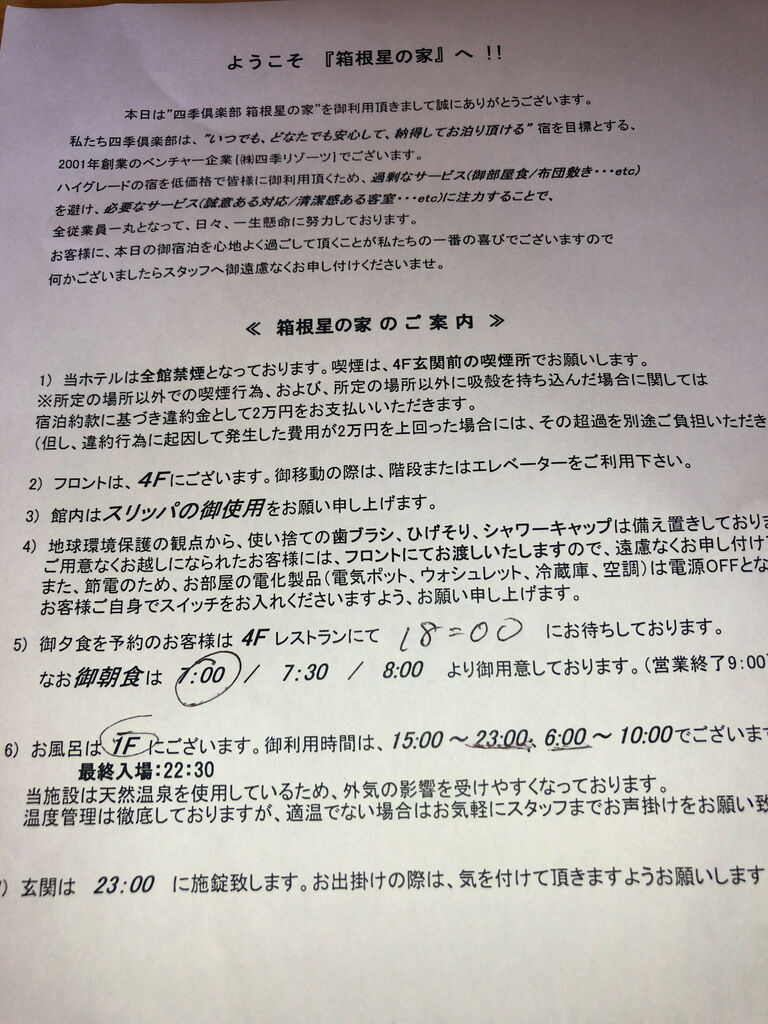 ようこそ 『箱根星の家』へ !!
本日は"四季倶楽部 箱根星の家"を御利用頂きまして誠にありがとうございます。
私たち四季倶楽部は、"いつでも、どなたでも安心して、納得してお泊り頂ける"宿を目標とする、
2001年創業のベンチャー企業[㈱四季リゾーツ]でございます。
ハイグレードの宿を低価格で皆様に御利用頂くため、過剰なサービス(御部屋食/布団敷き・・・etc)
を避け、必要なサービス(誠意ある対応/清潔感ある客室・・・etc)に注力することで、
全従業員一丸となって、日々、一生懸命に努力しております。
お客様に、本日の御宿泊を心地よく過ごして頂くことが私たちの一番の喜びでございますので
何かございましたらスタッフへ御遠慮なくお申し付けくださいませ。
≪ 箱根星の家 の ご 案 内 ≫
1) 当ホテルは全館禁煙となっております。喫煙は、4F玄関前の喫煙所でお願いします。
※所定の場所以外での喫煙行為、および、所定の場所以外に吸殻を持ち込んだ場合に関しては
宿泊約款に基づき違約金として2万円をお支払いいただきます。
(但し、違約行為に起因して発生した費用が2万円を上回った場合には、その超過を別途ご負担いただき
2) フロントは、4Fにございます。御移動の際は、階段またはエレベーターをご利用下さい。
3) 館内はスリッパの御使用をお願い申し上げます。
4) 地球環境保護の観点から、使い捨ての歯ブラシ、ひげそり、シャワーキャップは備え置きしておりま
ご用意なくお越しになられたお客様には、フロントにてお渡しいたしますので、遠慮なくお申し付け
また、節電のため、お部屋の電化製品(電気ポット、ウォシュレット、冷蔵庫、空調)は電源OFFとな
お客様ご自身でスイッチをお入れくださいますよう、お願い申し上げます。
5) 御夕食を予約のお客様は 4F レストランにて 18=00 にお待ちしております。
なお御朝食は 7:00 / 7:30 / 8:00 より御用意しております。(営業終了9:00)
6) お風呂は 1F にございます。御利用時間は、15:00 ～ 23:00、6:00 ～ 10:00でございま
最終入場:22:30
当施設は天然温泉を使用しているため、外気の影響を受けやすくなっております。
温度管理は徹底しておりますが、適温でない場合はお気軽にスタッフまでお声掛けをお願い致
) 玄関は 23:00 に施錠致します。お出掛けの際は、気を付けて頂きますようお願いします